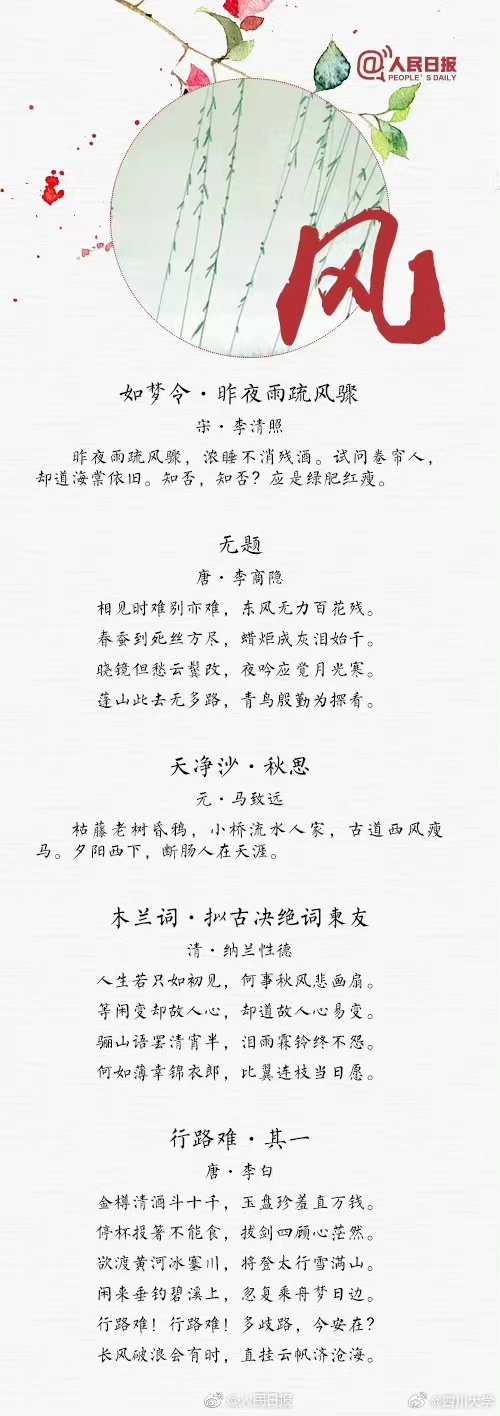 @人民日报
PEOPLE'S DAILY
风
如梦令·昨夜雨疏风骤
宋·李清照
昨夜雨疏风骤，浓睡不消残酒。试问卷帘人，
却道海棠依旧。知否，知否？应是绿肥红瘦。
无题
唐·李商隐
相见时难别亦难，东风无力百花残。
春蚕到死丝方尽，蜡炬成灰泪始干。
晓镜但愁云鬓改，夜吟应觉月光寒。
蓬山此去无多路，青鸟殷勤为探看。
天净沙·秋思
元·马致远
枯藤老树昏鸦，小桥流水人家，古道西风瘦
马。夕阳西下，断肠人在天涯。
木兰词·拟古决绝词柬友
清·纳兰性德
人生若只如初见，何事秋风悲画扇。
等闲变却故人心，却道故人心易变。
骊山语罢清宵半，泪雨霖铃终不怨。
何如薄幸锦衣郎，比翼连枝当日愿。
行路难·其一
唐·李白
金樽清酒斗十千，玉盘珍羞直万钱。
停杯投箸不能食，拔剑四顾心茫然。
欲渡黄河冰塞川，将登太行雪满山。
闲来垂钓碧溪上，忽复乘舟梦日边。
行路难！行路难！多歧路，今安在？
长风破浪会有时，直挂云帆济沧海。
@人民日报
@四川大学